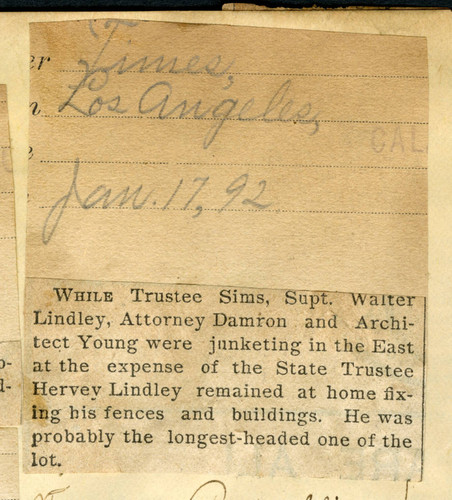 er Times,
n Los Angeles,
e CAL
Jan. 17, 92
WHILE Trustee Sims, Supt. Walter
Lindley, Attorney Damron and Archi-
tect Young were junketing in the East
at the expense of the State Trustee
Hervey Lindley remained at home fix-
ing his fences and buildings. He was
probably the longest-headed one of the
lot.